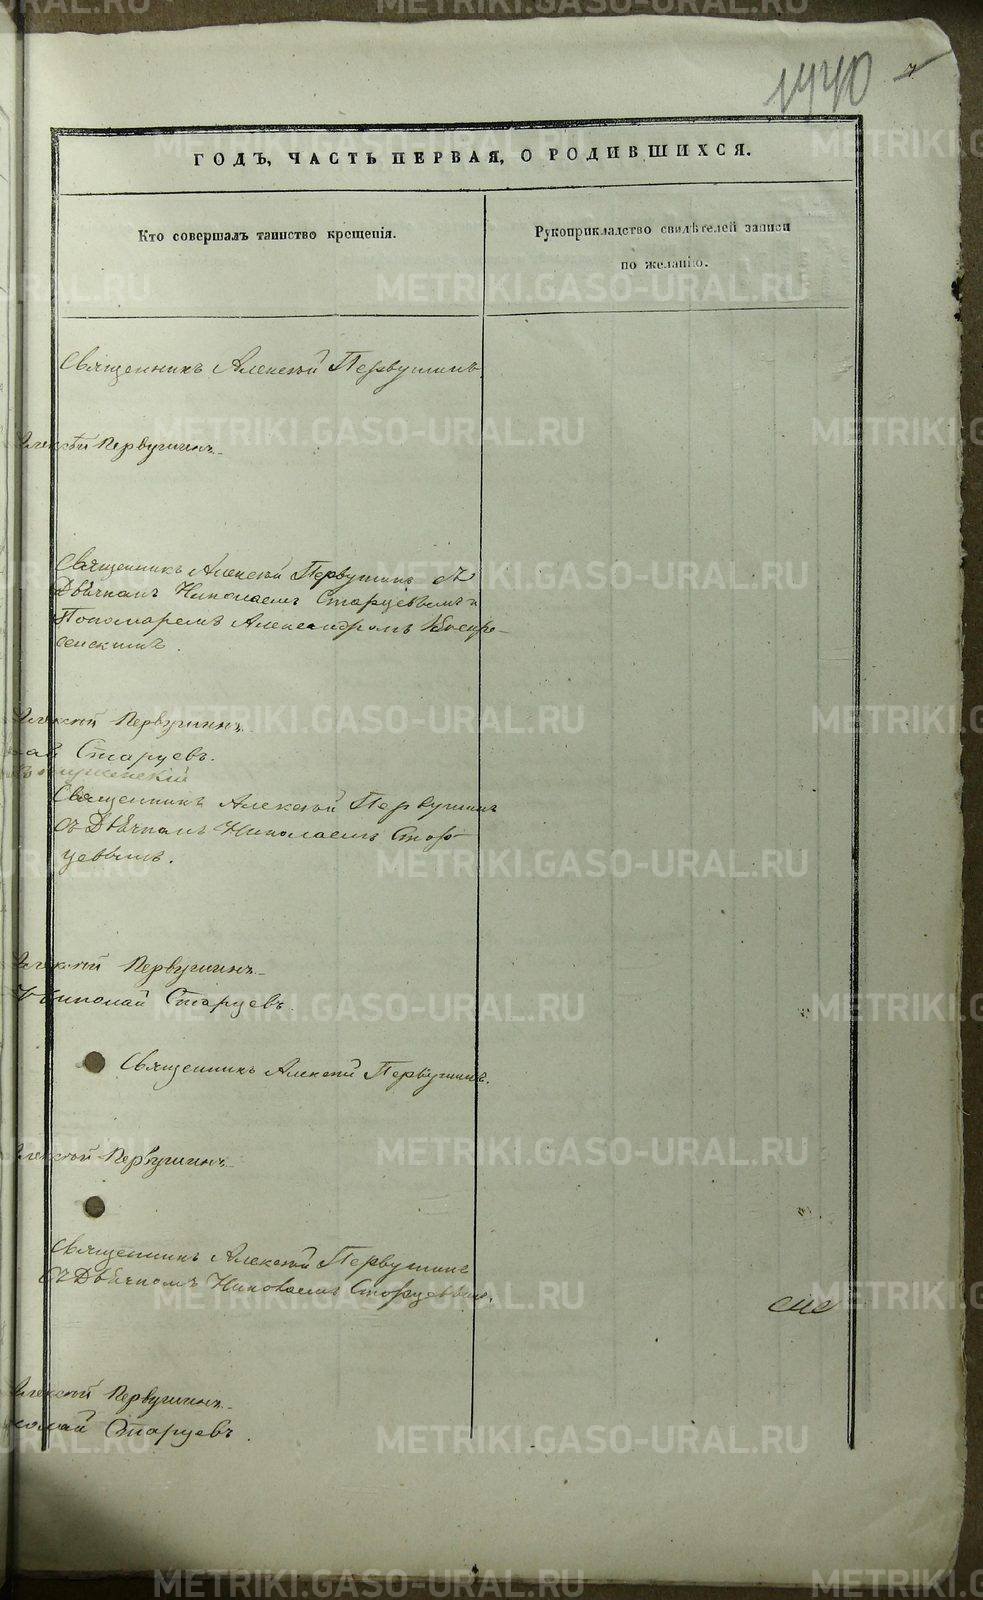 1440
7
ГОДЪ, ЧАСТЬ ПЕРВАЯ, О РОДИВШИХСЯ.
Кто совершалъ таинство крещенія.
Рукоприкладство свидѣтелей записи
по желанію.
Священникъ Алексѣй Первушинъ.
Алексѣй Первушинъ.
Священникъ Алексѣй Первушинъ съ
Дьячкомъ Николаемъ Старцевымъ и
Пономаремъ Александромъ Воскре-
сенскимъ.
Алексѣй Первушинъ.
Старцевъ.
Священникъ Алексѣй Первушинъ
съ Дьячкомъ Николаемъ Стар-
цевымъ.
Алексѣй Первушинъ.
Николай Старцевъ.
Священникъ Алексѣй Первушинъ.
Алексѣй Первушинъ.
Священникъ Алексѣй Первушинъ
съ Дьячкомъ Николаемъ Старцевымъ.
Алексѣй Первушинъ.
колай Старцевъ.
METRIKI.GASO-URAL.RU